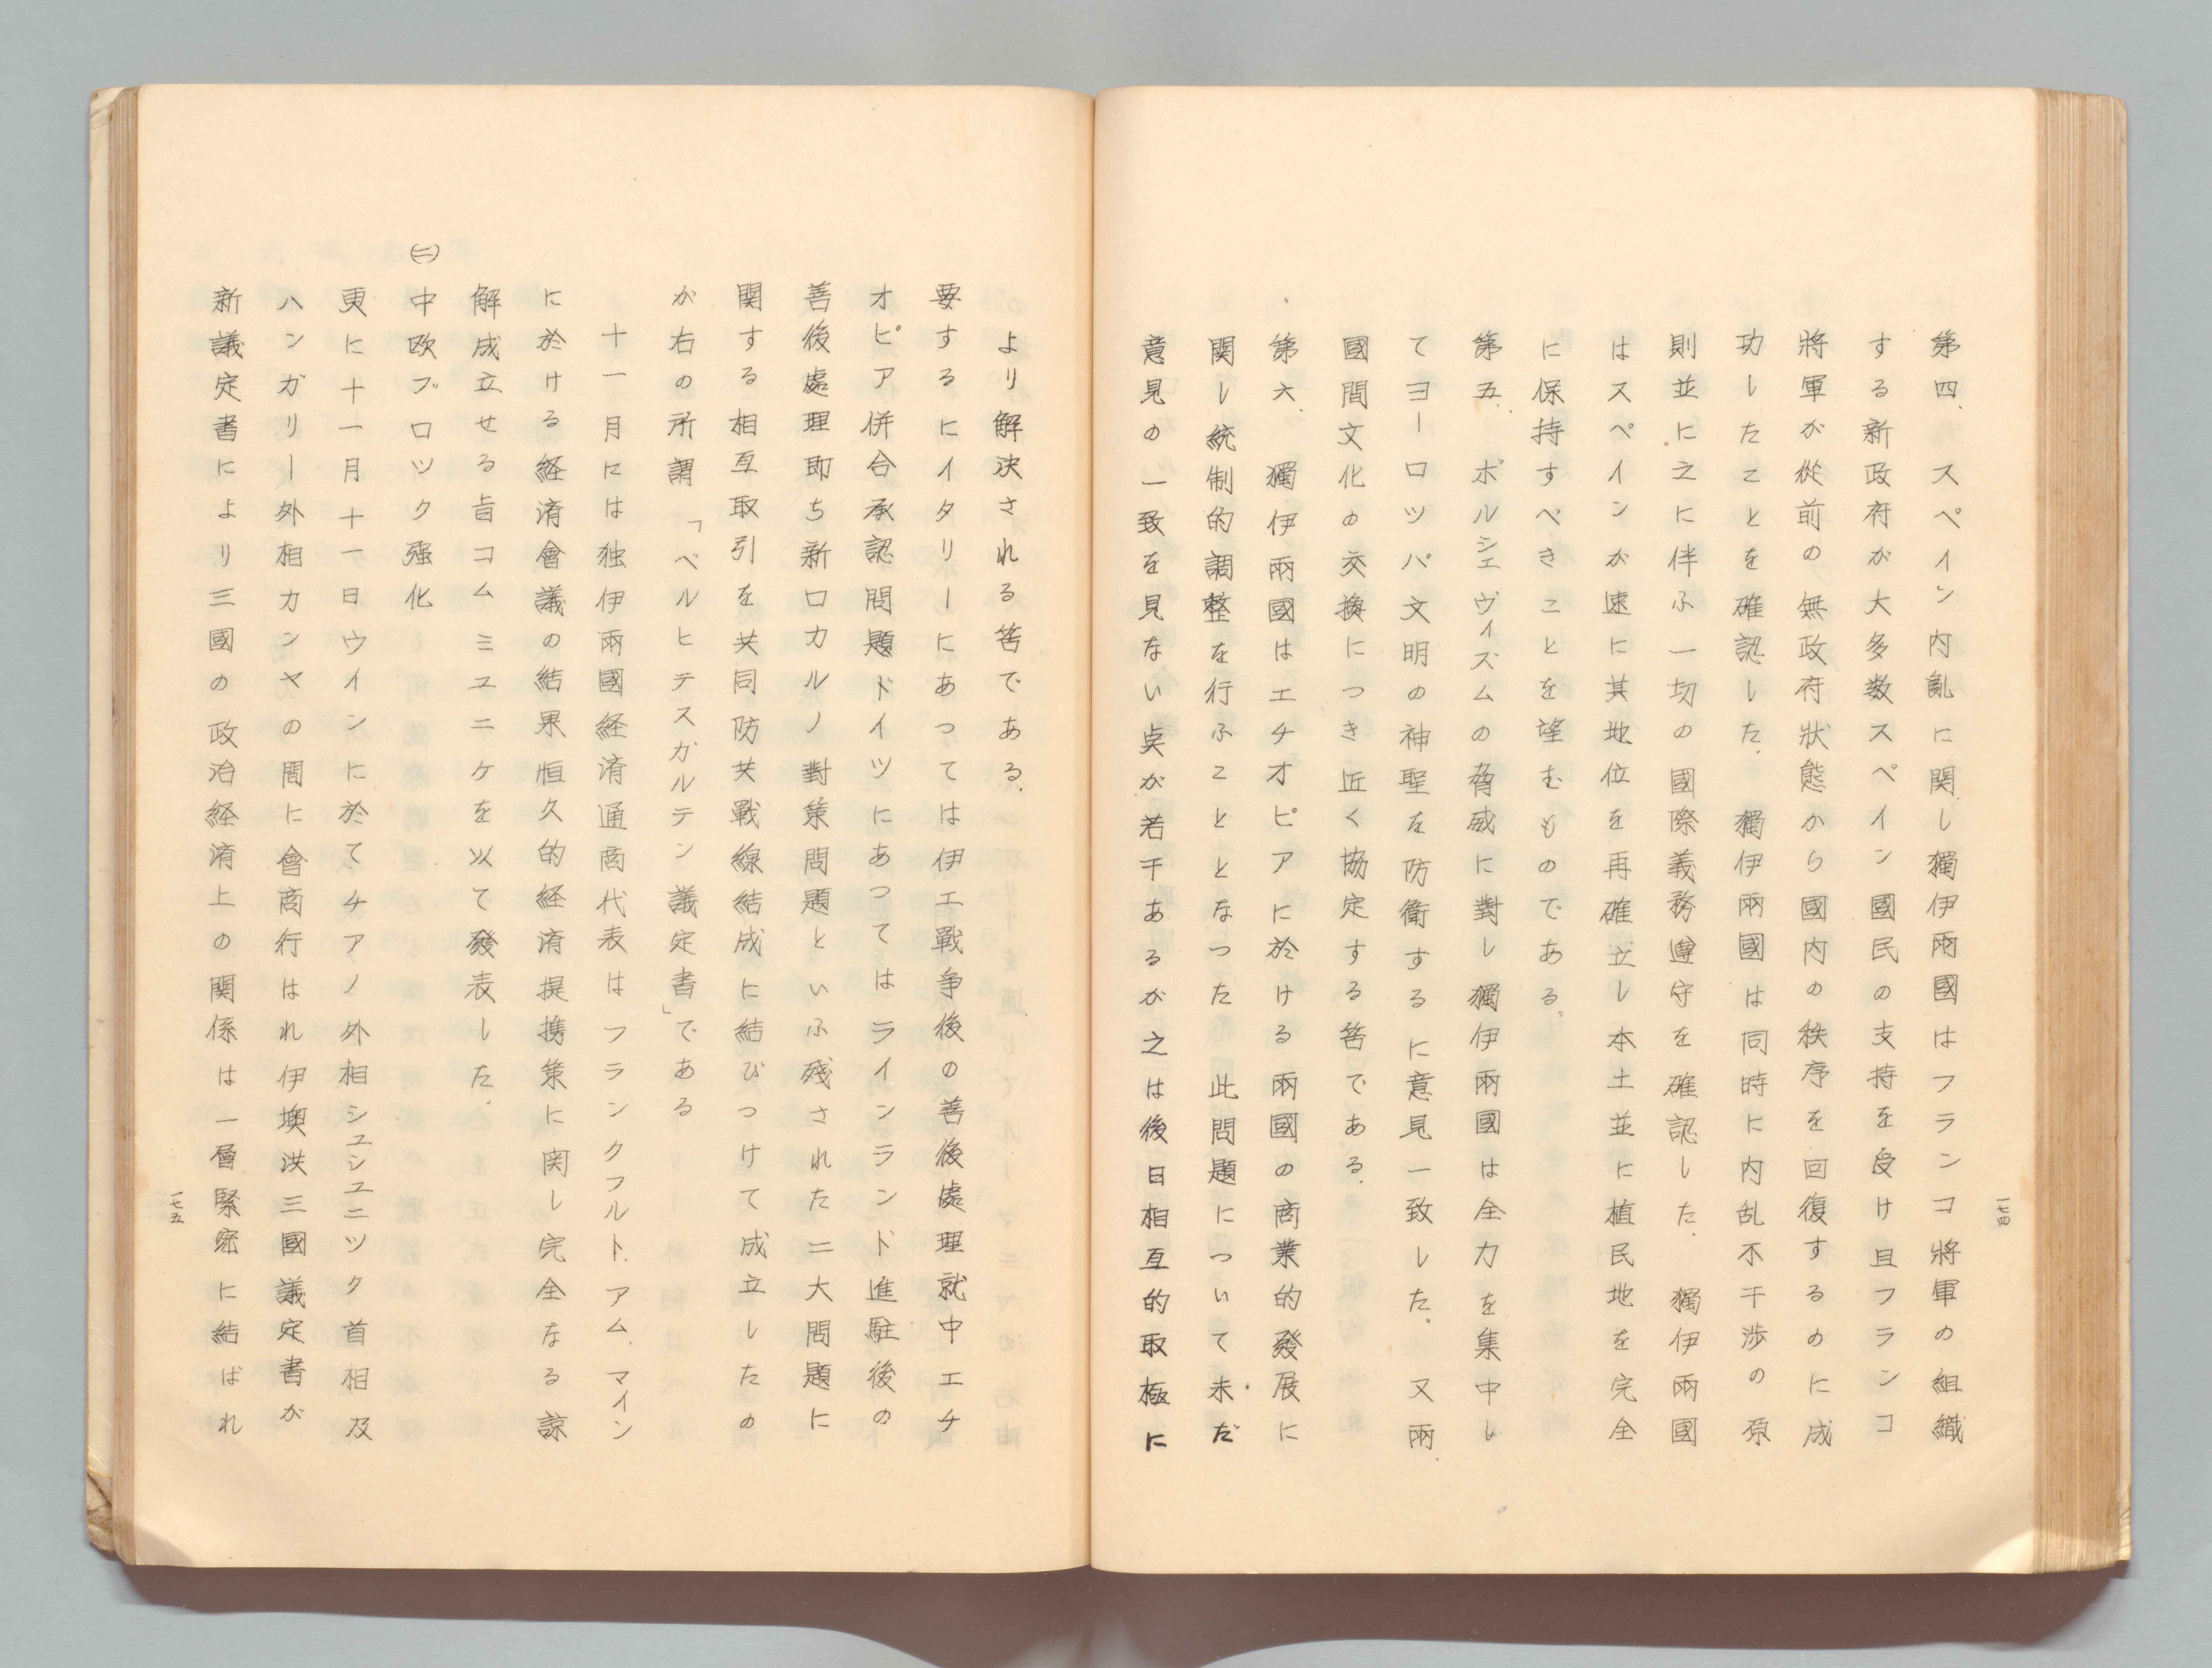 一七四
第四、スペイン内亂に関し獨伊兩國はフランコ將軍の組織
する新政府が大多数スペイン國民の支持を受け且フランコ
將軍が從前の無政府狀態から國内の秩序を回復するのに成
功したことを確認した、獨伊兩國は同時に内乱不干渉の原
則並に之に伴ふ一切の國際義務遵守を確認した、獨伊兩國
はスペインが速に其地位を再確立し本土並に植民地を完全
に保持すべきことを望むものである。
第五、ボルシェヴィズムの脅威に對し獨伊兩國は全力を集中し
てヨーロツパ文明の神聖を防衛するに意見一致した。又兩
國間文化の交換につき近く協定する筈である、
第六、獨伊兩國はエチオピアに於ける兩國の商業的發展に
関し統制的調整を行ふこととなつた 此問題について未だ
意見の一致を見ない点が若干あるが之は後日相互的取極に
より解決される筈である、
要するにイタリーにあつては伊エ戰争後の善後處理就中エチ
オピア併合承認問題ドイツにあつてはラインランド進駐後の
善後處理即ち新ロカルノ對策問題といふ残された二大問題に
関する相互取引を共同防共戰線結成に結びつけて成立したの
が右の所謂「ベルヒテスガルテン議定書」である
十一月には独伊兩國経済通商代表はフランクフルト、アム、マイン
に於ける経済會議の結果恒久的経済提携策に関し完全なる諒
解成立せる旨コムミユニケを以て發表した、
(二)中欧ブロツク强化
更に十一月十一日ウインに於てチアノ外相シユシユニツク首相及
ハンガリー外相カンヤの間に會商行はれ伊墺洪三國議定書が
新議定書により三國の政治経済上の関係は一層緊密に結ばれ
一七五